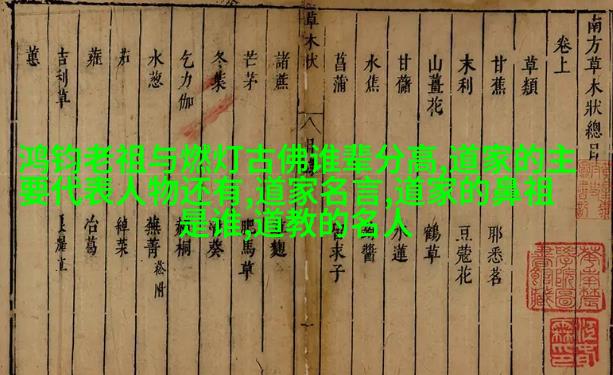 鸿钧老祖与燃灯古佛谁辈分高,道家的主
要代表人物还有,道家名言,道家的鼻祖
是谁,道教的名人
南方草木狀總目
卷上
草類
甘蕉 耶悉茗
末利 豆蔻花
山薑花 鶴草
甘藷 水蓮
水蕉 醬
菖蒲 求子
草木狀 八
諸蔗 麴
芒茅 肥馬草
冬葉 葵
乞力伽 桐
水葱 蕪菁 菘附
茄 綽菜
蕹 冶葛
吉利草
蕙